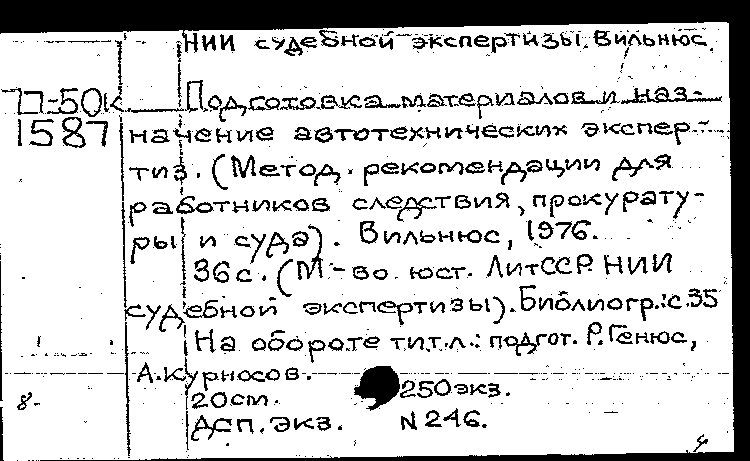 НИИ судебной экспертизы. Вильнюс
П-50к Подготовка материалов и наз-
1587 начение автотехнических экспер-
тиз. (Метод. рекомендации для
работников следствия, прокурату-
ры и суда). Вильнюс, 1976.
36 с. (М-во юст. ЛитССР. НИИ
судебной экспертизы). Библиогр.: с. 35
На обороте тит. л.: подгот. Р. Генюс,
А. Курносов.
20 см. 250 экз.
8-
ДСП. Экз. N 246.